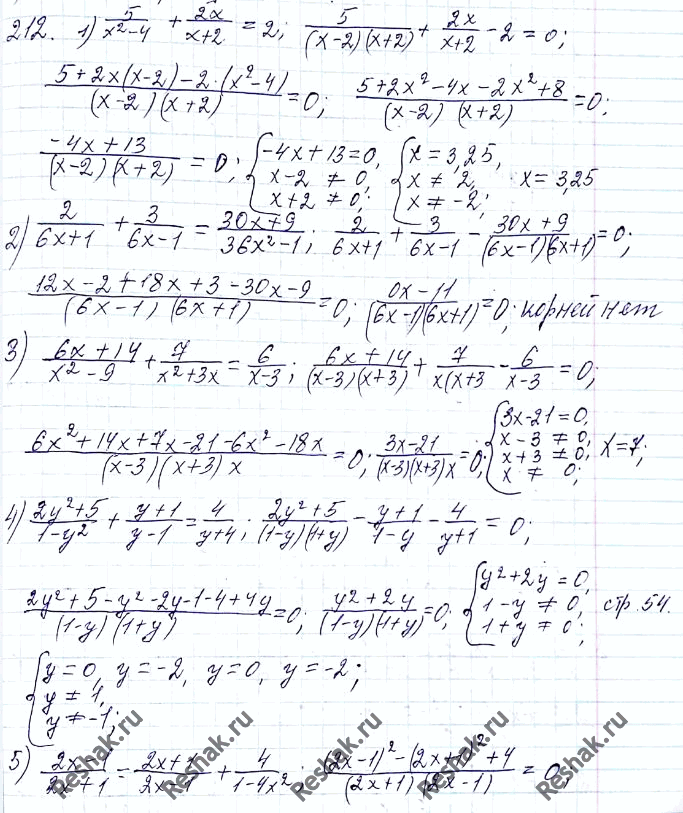 212. 1) 5/(x²-4) + 2x/(x+2) = 2; 5/((x-2)(x+2)) + 2x/(x+2) - 2 = 0;
(5+2x(x-2)-2·(x²-4))/((x-2)(x+2)) = 0; (5+2x²-4x-2x²+8)/((x-2)(x+2)) = 0;
(-4x+13)/((x-2)(x+2)) = 0; { -4x+13=0, x-2 ≠ 0, x+2 ≠ 0; { x = 3,25, x ≠ 2, x ≠ -2; x = 3,25
2) 2/(6x+1) + 3/(6x-1) = (30x+9)/(36x²-1); 2/(6x+1) + 3/(6x-1) - (30x+9)/((6x-1)(6x+1)) = 0;
(12x-2+18x+3-30x-9)/((6x-1)(6x+1)) = 0; (0x-11)/((6x-1)(6x+1)) = 0; корней нет
3) (6x+14)/(x²-9) + 7/(x²+3x) = 6/(x-3); (6x+14)/((x-3)(x+3)) + 7/(x(x+3) - 6/(x-3) = 0;
(6x²+14x+7x-21-6x²-18x)/((x-3)(x+3)x) = 0; (3x-21)/((x-3)(x+3)x) = 0; { 3x-21=0, x-3 ≠ 0, x+3 ≠ 0, x ≠ 0; x=7;
4) (2y²+5)/(1-y²) + (y+1)/(y-1) = 4/(y+4); (2y²+5)/((1-y)(1+y)) - (y+1)/(1-y) - 4/(y+1) = 0;
(2y²+5-y²-2y-1-4+4y)/((1-y)(1+y)) = 0; (y²+2y)/((1-y)(1+y)) = 0; { y²+2y=0, 1-y ≠ 0, 1+y ≠ 0; стр. 54.
{ y=0, y=-2, y ≠ 1, y ≠ -1; y=0, y=-2;
5) (2x-1)/(2x+1) = (2x+1)/(2x-1) + 4/(1-4x²); ((2x-1)²-(2x+1)²+4)/((2x+1)(2x-1)) = 0;
Reshak.ru
Reshak.ru
Reshak.ru
Reshak.ru
Reshak.ru